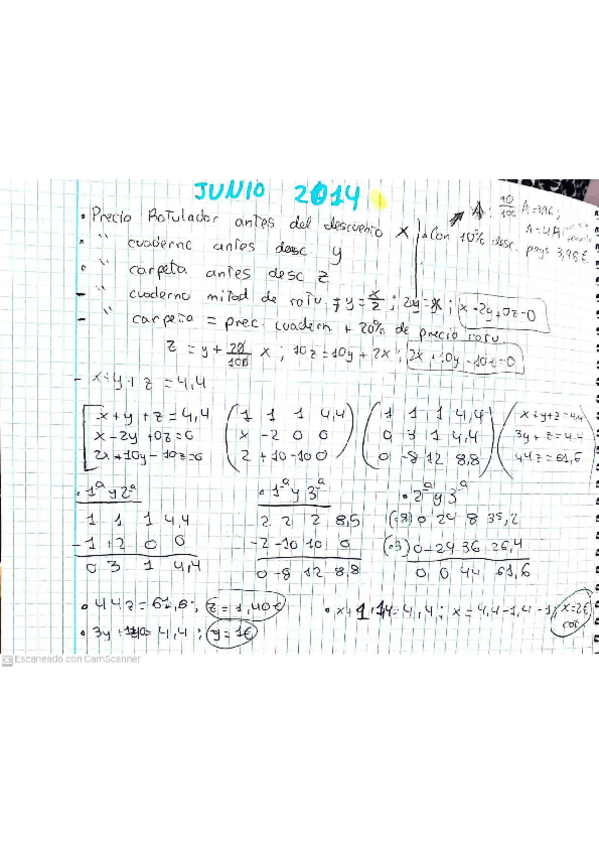 JUNIO 2014
• Precio Rotulador antes del descuento x
A: 90/100 A=3,96;
A=4,4
con 10% desc. pago 3,96€
• " cuaderno antes desc. y
• " carpeta antes desc z
- " cuaderno mitad de rotu. → y = x/2 ; 2y=x ; x-2y+0z=0
- " carpeta = prec. cuadern + 20% de precio rotu
z = y + 20/100 x ; 10z=10y+2x ; 2x+10y-10z=0
- x+y+z=4,4
x+y+z=4,4 1 1 1 4,4 1 1 1 4,4 x+y+z=4,4
x-2y+0z=0 x -2 0 0 0 3 1 4,4 3y+z=4.4
2x+10y-10z=0 2 +10 -10 0 0 -8 12 8,8 44z=61,6
• 1ª y 2ª • 1ª y 3ª • 2ª y 3ª
1 1 1 4,4 2 2 2 8,5 (·8) 0 24 8 35,2
-1 +2 0 0 -2 -10 10 0 (·3) 0 -24 36 26,4
0 3 1 4,4 0 -8 12 8,8 0 0 44 61,6
• 44z=61,6; z=1,40€ • x+1+1,4=4,4; x=4,4-1,4-1; x=2€ rot.
• 3y+1,40=4,4; y=1€
CS Escaneado con CamScanner